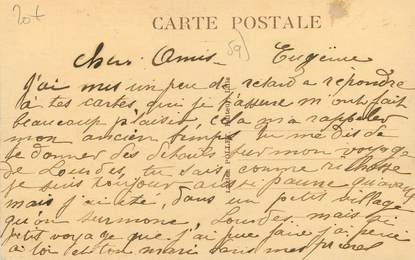 20 f
CARTE POSTALE
59)
Chers Amis - Eugénie
J'ai mis un peu de retard a repondre
à tes cartes, qui je t'assure m'ont fait
beaucoup plaisir, cela m'a rappeler
mon ancien temps tu me dis de
te donner des détails sur mon voyage
de Lourdes, tu sais comme richesse
je suis toujour aussi pauvre qu'avant
mais j'ai été, dans un petit village
qu'on Lourdes mais au
petit voyage que j'ai pue faire j'ai pensé
a toi et ton mari